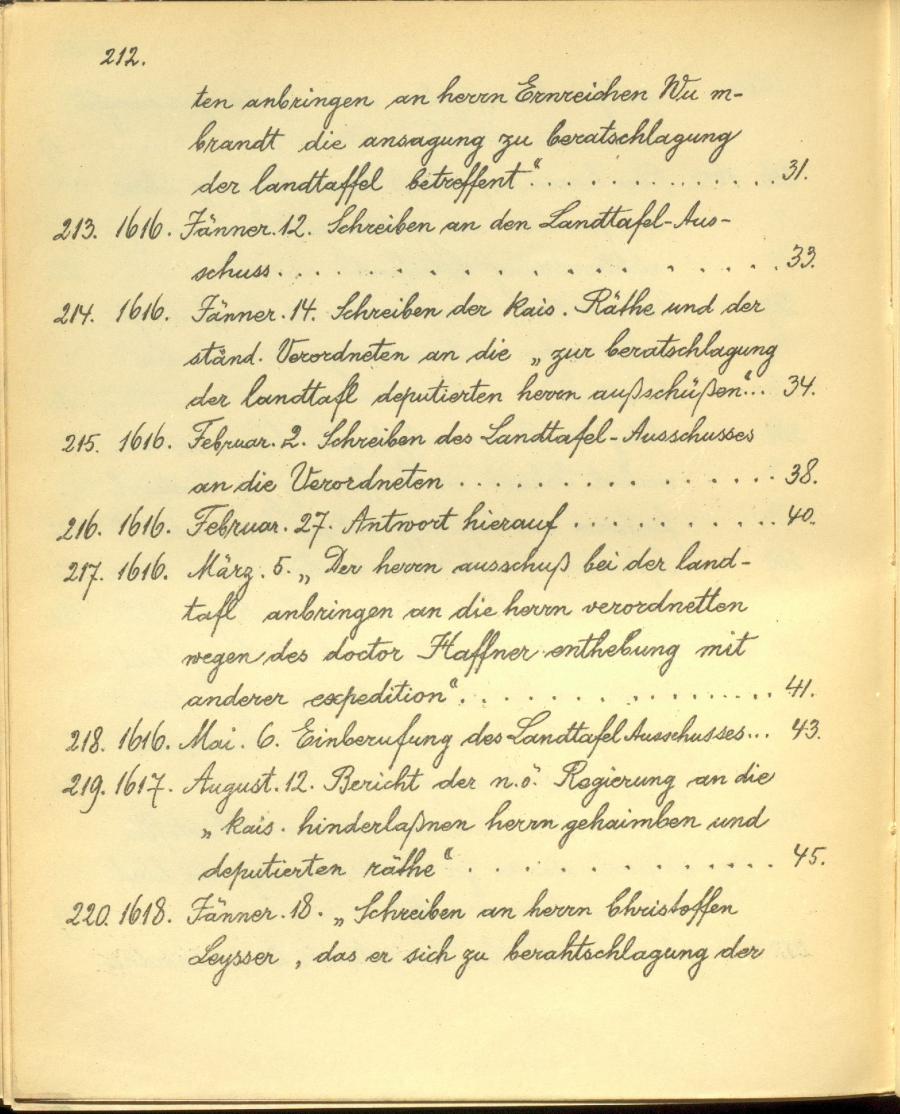 212.
ten anbringen an herrn Ernreichen Wu m-
brandt die ansagung zu beratschlagung
der landtaffel betreffent“. . . . . . . . . . . . . . 31.
213. 1616. Jänner. 12. Schreiben an den Landtafel-Aus-
schuss. . . . . . . . . . . . . . . 33.
214. 1616. Jänner. 14. Schreiben der kais. Räthe und der
ständ. Verordneten an die „zur beratschlagung
der landtafl deputierten herrn außschüßen“... 34.
215. 1616. Februar. 2. Schreiben des Landtafel-Ausschusses
an die Verordneten . . . . . . . . . . . . . . . 38.
216. 1616. Februar. 27. Antwort hierauf . . . . . . . . . . 40.
217. 1616. März. 5. „Der herrn ausschuß bei der land-
tafl anbringen an die herrn verordnetten
wegen des doctor Haffner enthebung mit
anderer expedition“. . . . . . . . . . . . . . . . 41.
218. 1616. Mai. 6. Einberufung des Landtafel Ausschusses... 43.
219. 1617. August. 12. Bericht der n.ö. Regierung an die
„kais. hinderlaßnen herrn gehaimben und
deputierten räthe“ . . . . . . . . . . . . . . 45.
220. 1618. Jänner. 18. „Schreiben an herrn Christoffen
Leysser, das er sich zu berahtschlagung der